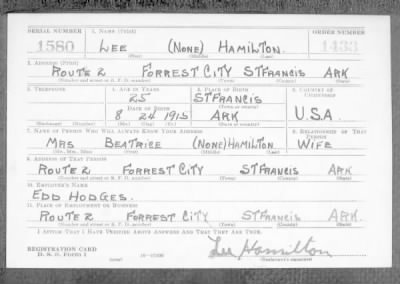 SERIAL NUMBER 1. NAME (Print) ORDER NUMBER
1580 LEE (NONE) HAMILTON. 1433
(First) (Middle) (Last)
2. ADDRESS (Print)
ROUTE 2 FORREST CITY ST FRANCIS ARK
(Number and street or R. F. D. number) (Town) (County) (State)
3. TELEPHONE 4. AGE IN YEARS 5. PLACE OF BIRTH 6. COUNTRY OF CITIZENSHIP
25 ST FRANCIS
DATE OF BIRTH (Town or county)
8 24 1915 ARK U.S.A.
(Exchange) (Number) (Mo.) (Day) (Yr.) (State or country)
7. NAME OF PERSON WHO WILL ALWAYS KNOW YOUR ADDRESS 8. RELATIONSHIP OF THAT PERSON
MRS BEATRICE (NONE) HAMILTON WIFE
(Mr., Mrs., Miss) (First) (Middle) (Last)
9. ADDRESS OF THAT PERSON
ROUTE 2 FORREST CITY ST FRANCIS ARK
(Number and street or R. F. D. number) (Town) (County) (State)
10. EMPLOYER'S NAME
EDD HODGES.
11. PLACE OF EMPLOYMENT OR BUSINESS
ROUTE 2 FORREST CITY ST FRANCIS ARK.
(Number and street or R. F. D. number) (Town) (County) (State)
I AFFIRM THAT I HAVE VERIFIED ABOVE ANSWERS AND THAT THEY ARE TRUE.
REGISTRATION CARD
D. S. S. Form 1 Lee Hamilton
(Registrant's signature)